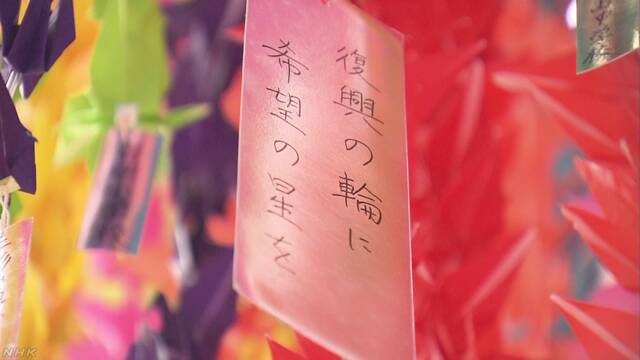 復興の輪に
希望の星を
NHK